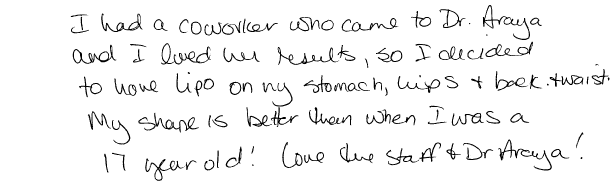 I had a coworker who came to Dr. Araya
and I loved her results, so I decided
to have lipo on my stomach, hips + back. + waist.
My shape is better than when I was a
17 year old! Love the staff + Dr Araya!